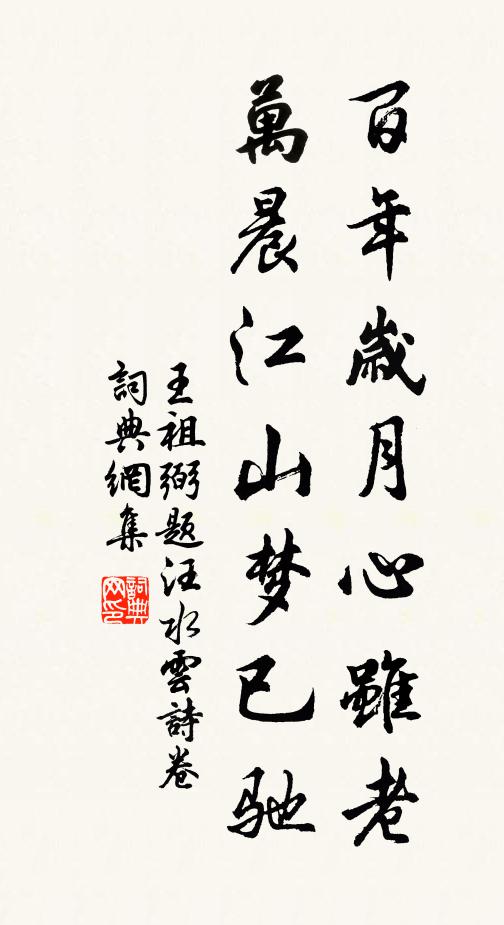 百年歲月心雖老
萬晨江山梦已驰
王祖弼题汪水雲詩卷
詞典網集
詞典
网印